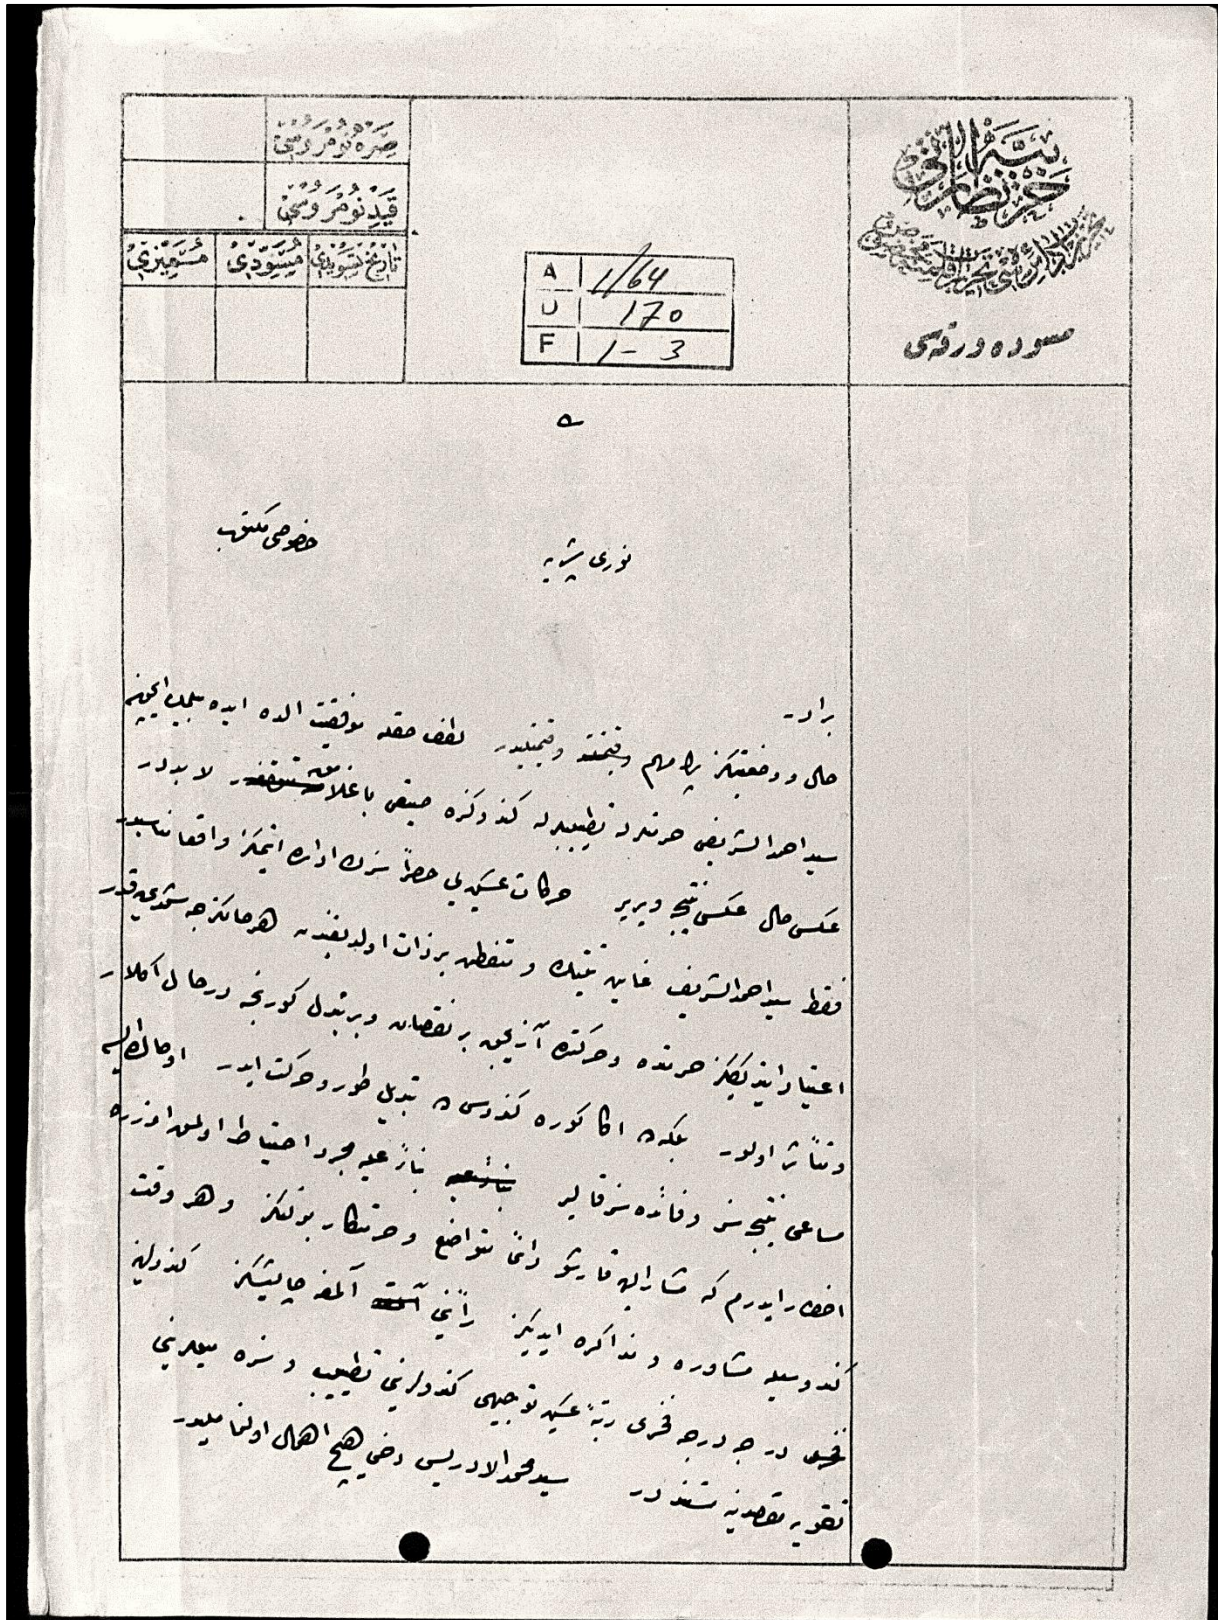 حربیه نظارتی
مسوده ورقه سی
صره نومروسی
قید نومروسی
تاریخ تسویدی
مسودی
مبیضی
A 1/64
U 170
F 1-3
خصوصی مکتوب
نوری بك
برادر
حال و وضعیتكز پك مهم وقیمتلیدر لطف حقله موفقیت الده ایده بیلمك ایچون
سید احمد الشریفی حرمتله تطییبله كندوكزه صیقی باغلامق لابددر
عكس حال عكس نتیجه ویریر حركات عسكریه‌یی حصراً سزك اداره ایتمكز واقعا مناسبدر
فقط سید احمد الشریف غایت و متفطن بر ذات اولدیغندن هر حالكزجه شمدی‌یه قدر
اعتیاد ایتدیكی حرمتده و حركتده آزیجق بر نقصان و بر تبدل كورنجه درحال آكلار
و متأثر اولور بلكه ده اكا كوره كندوسی ده تبدیل طور و حركت ایدر او حالده ایسه
مساعی نتیجه‌سز و فائده‌سز قالیر بناءً علیه مجرد احتیاط اولمق اوزره
اخطار ایدرم كه مشار الیه قارشو دائما متواضع و حرمتكار بولنكز و هر وقت
كندوسیله مشاوره و مذاكره ایدیكز رأینی آلمغه چالیشكز كندولرینه
درجه درجه فخری رتبهٔ عسكریه توجیهی كندولرینی تطییب و سزه میللرینی
تقویه مقصدینه مستنددر سید محمد الادریسی دخی هیچ اهمال اولنماملیدر